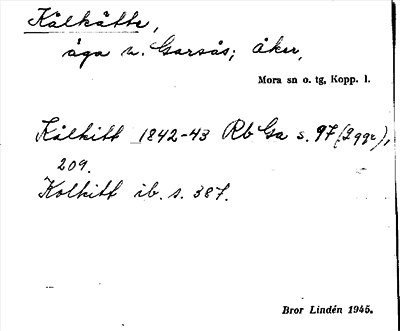 Kålkätte,
äga n. Garsås; åker,
Mora sn o. tg, Kopp. l.
Kålkitt 1842-43 Rb Ga s. 97 (2 ggr),
209.
Kolkitt ib. s. 387.
Bror Lindén 1945.